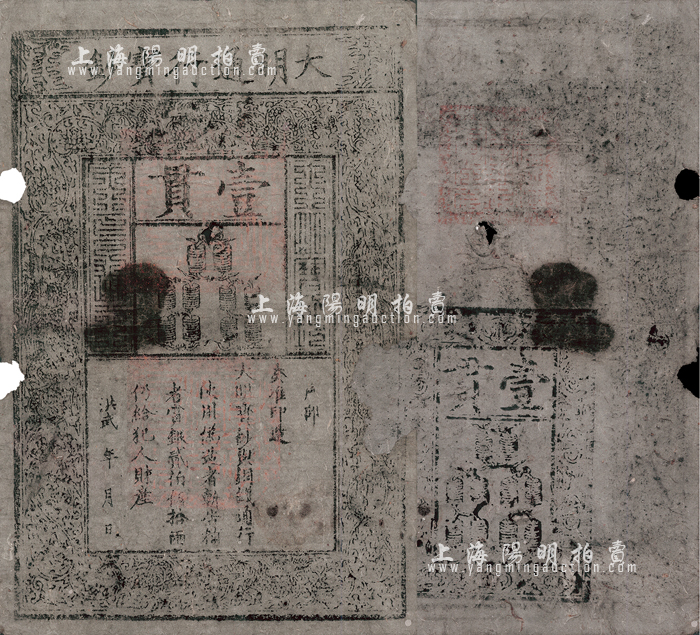 上海陽明拍賣
www.yangmingauction.com
大明通行寶鈔
壹貫
上海陽明拍賣
www.yangmingauction.com
戶部
奏准印造
大明寶鈔與銅錢通行
使用偽造者斬告捕
者賞銀貳伯伍拾兩
仍給犯人財產
洪武 年 月 日
壹貫
上海陽明拍賣
www.yangmingauction.com